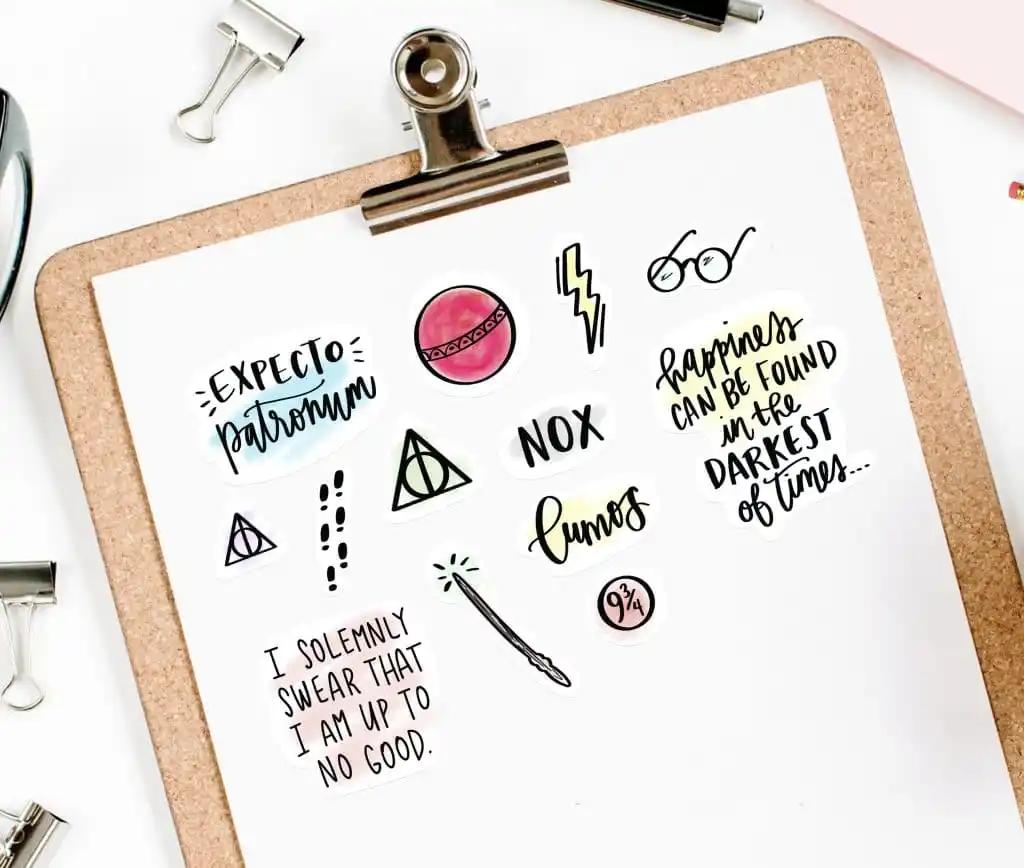 EXPECTO
patronum
NOX
lumos
happiness
CAN BE FOUND
in the
DARKEST
of times...
9 3/4
I SOLEMNLY
SWEAR THAT
I AM UP TO
NO GOOD.